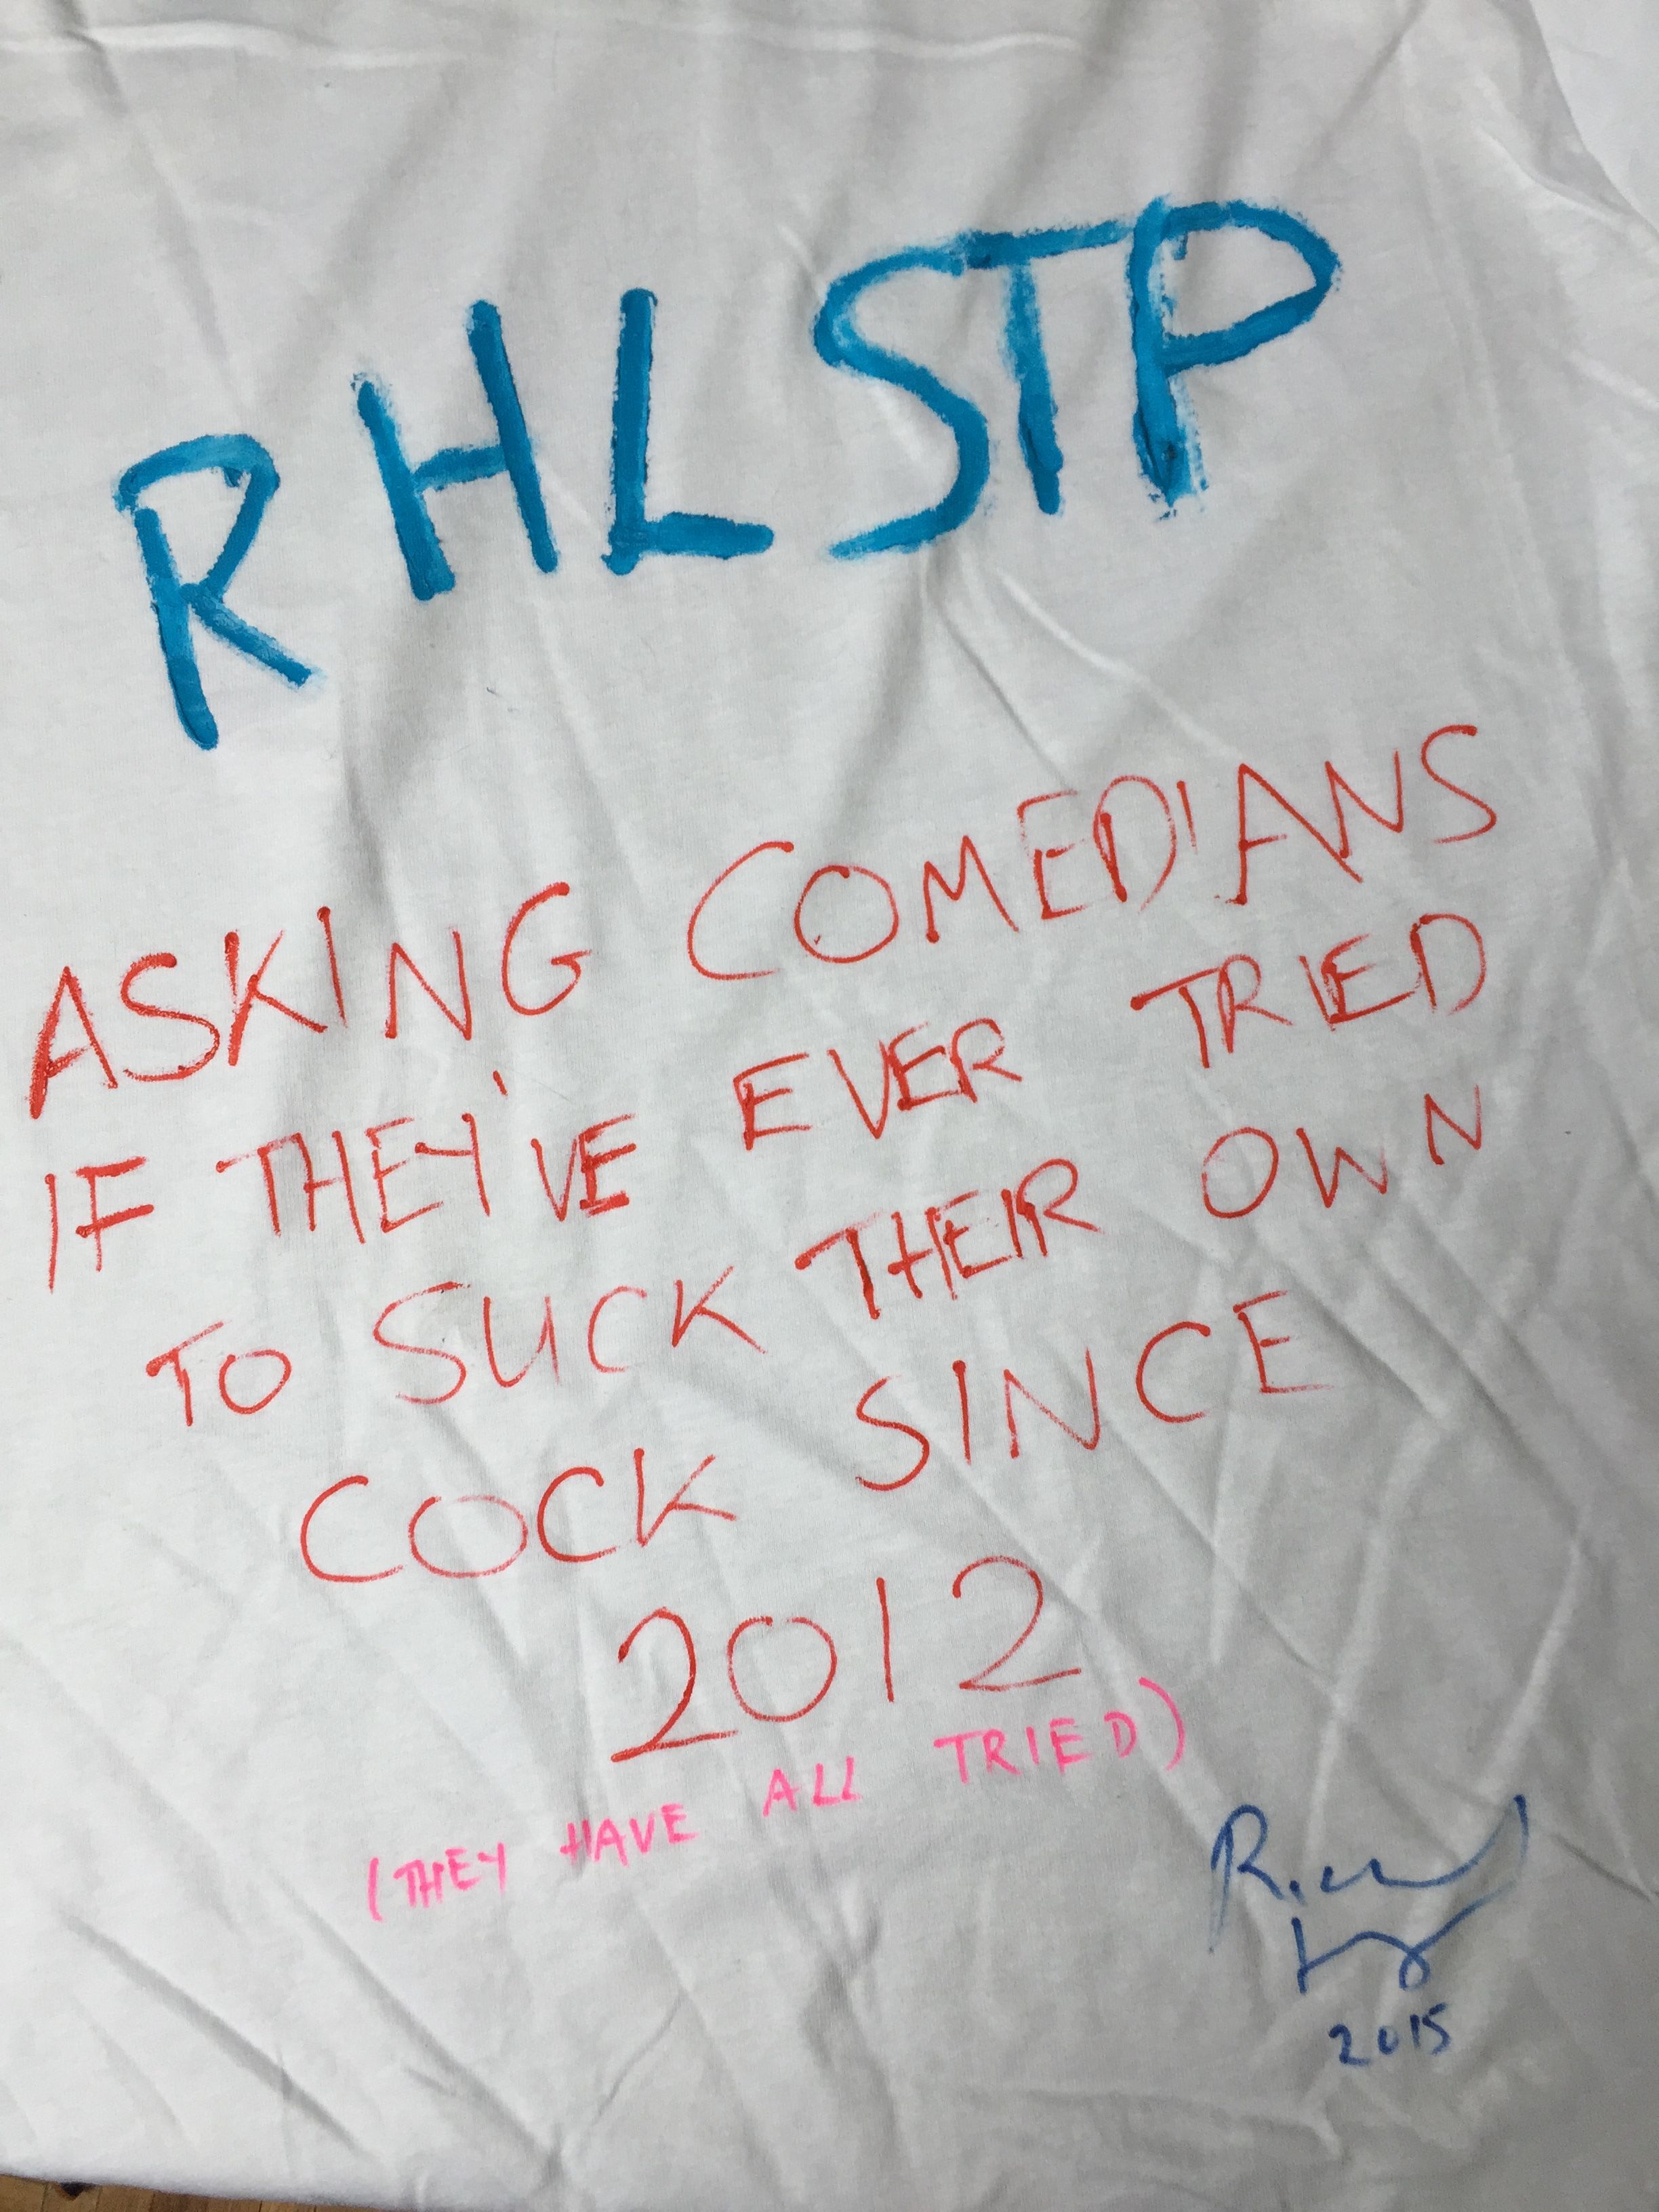 RHLSTP
ASKING COMEDIANS
IF THEY'VE EVER TRIED
TO SUCK THEIR OWN
COCK SINCE
2012
(THEY HAVE ALL TRIED)
Richard
2015